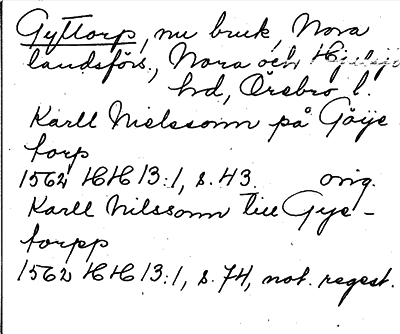 Gyttorp, nu bruk, Nora
landsförs., Nora och
hd, Örebro l.
Karll Nielssonn på Göye
torp
1562 HH 13:1, s. 43. orig.
Karll Nilssonn till Gye-
torpp
1562 HH 13:1, s. 74, not. regest.